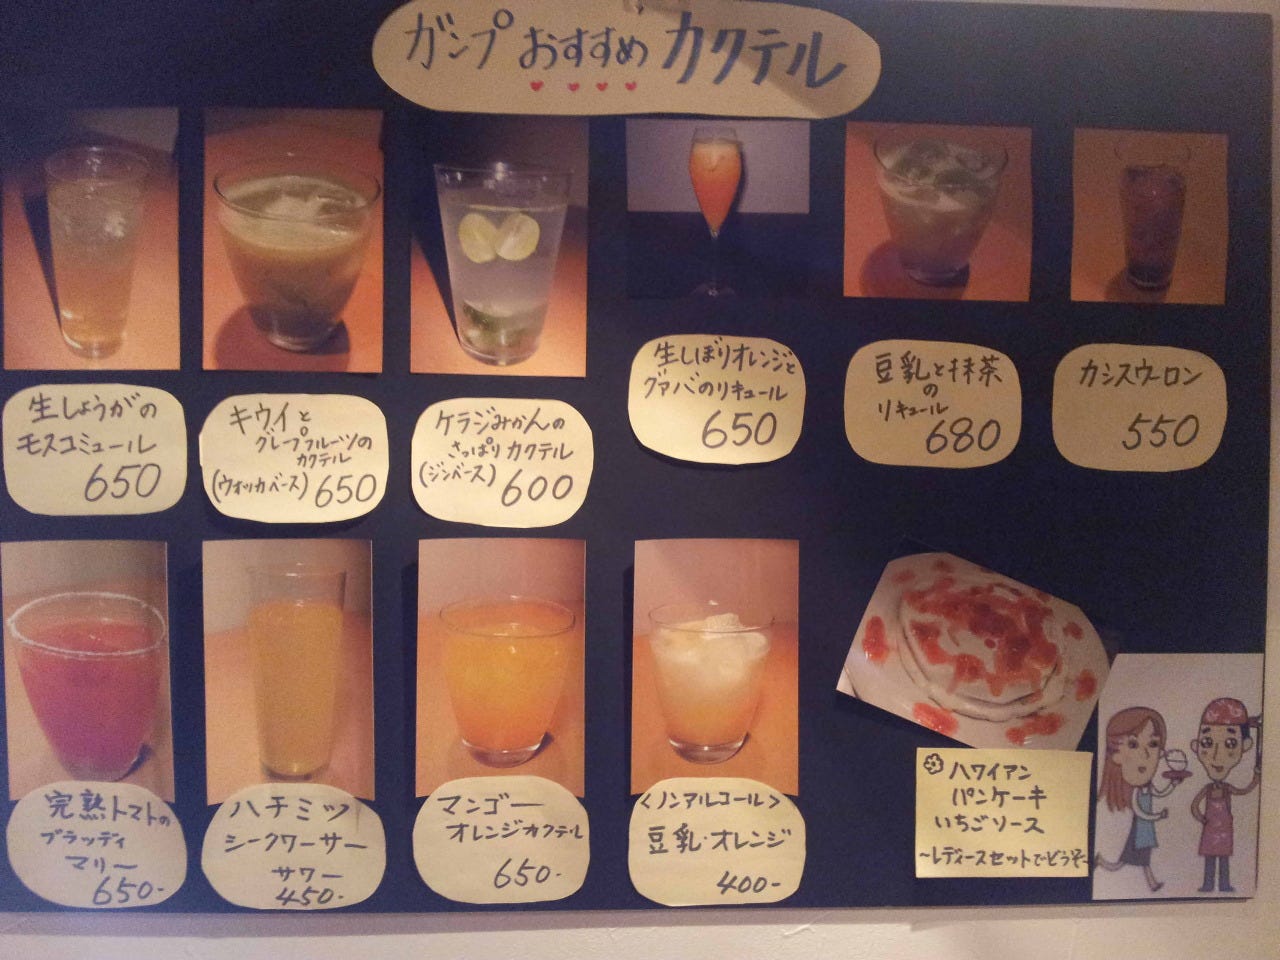 ガンプ おすすめ カクテル
生しょうがの
モスコミュール
650
キウイと
グレープフルーツの
カクテル
(ウォッカベース) 650
ケラジみかんの
さっぱりカクテル
(ジンベース) 600
生しぼりオレンジと
グァバのリキュール
650
豆乳と抹茶
の
リキュール
680
カシスウーロン
550
完熟トマトの
ブラッディ
マリー
650-
ハチミツ
シークワーサー
サワー
450-
マンゴー
オレンジカクテル
650-
<ノンアルコール>
豆乳・オレンジ
400-
ハワイアン
パンケーキ
いちごソース
~レディースセットでどうぞ~